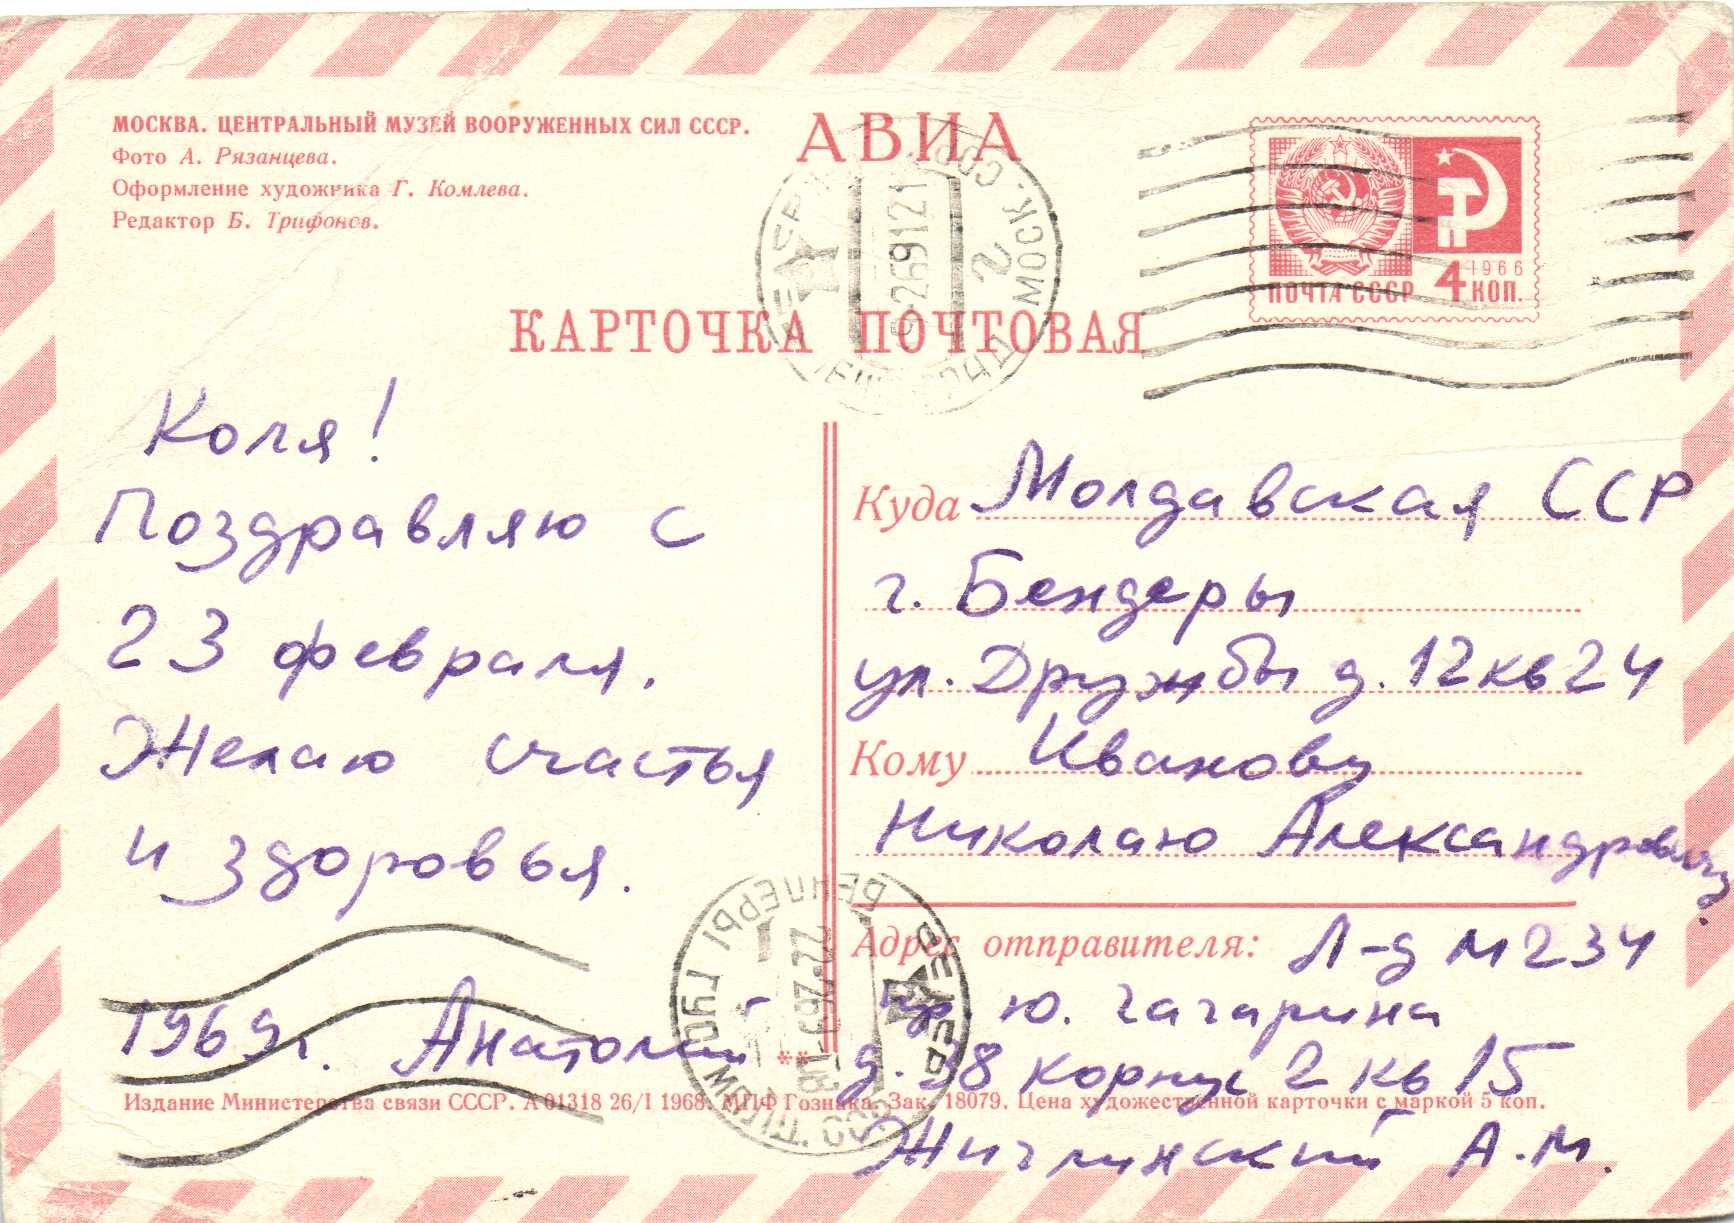 МОСКВА. ЦЕНТРАЛЬНЫЙ МУЗЕЙ ВООРУЖЕННЫХ СИЛ СССР.
Фото А. Рязанцева.
Оформление художника Г. Комлева.
Редактор Б. Трифонов.
АВИА
КАРТОЧКА ПОЧТОВАЯ
1966
ПОЧТА СССР 4 КОП.
МОСК.
Коля!
Поздравляю с
23 февраля.
Желаю счастья
и здоровья.
1969г. Анатолий
Куда Молдавская ССР
г. Бендеры
ул. Дружбы д. 12 кв 24
Кому Иванову
Николаю Александровичу
Адрес отправителя: Л-д М234
пр. Ю. Гагарина
д. 38 корпус 2 кв 15
Жиглинский А.М.
БЕНДЕРЫ
Издание Министерства связи СССР. А 01318 26/I 1968. МПФ Гознака. Зак. 18079. Цена художественной карточки с маркой 5 коп.